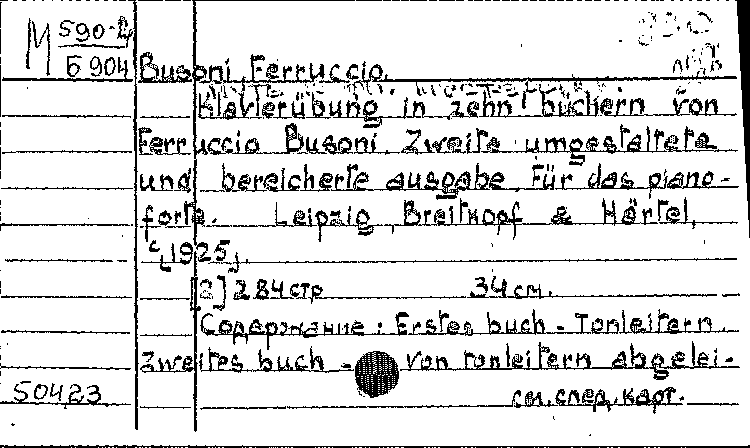 М 590-2
Б 904
Busoni, Ferruccio.
Klavierübung in zehn büchern von
Ferruccio Busoni. Zweite umgestaltete
und bereicherte ausgabe. Für das piano-
forte. Leipzig, Breitkopf & Härtel,
ᶜ[1925].
[2] 284 стр 34 см.
Содержание: Erstes buch - Tonleitern.
Zweites buch - Von tonleitern abgelei-
50423 см. след. карт.